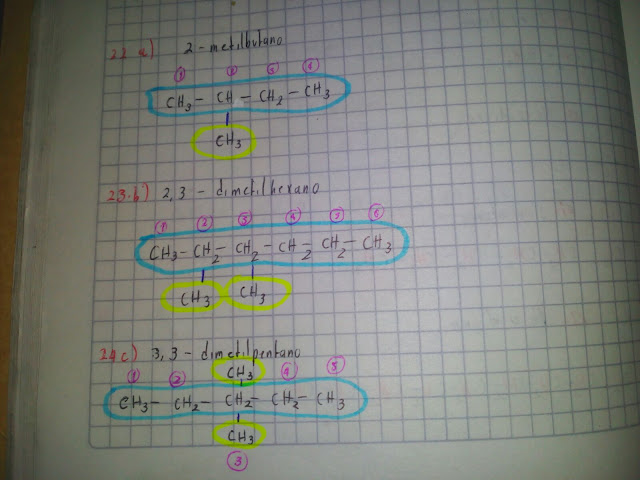 22 a) 2-metilbutano
① ② ③ ④
CH₃ - CH - CH₂ - CH₃
CH₃
23.b) 2,3 - dimetilhexano
① ② ③ ④ ⑤ ⑥
CH₃ - CH₂ - CH₂ - CH₂ - CH₂ - CH₃
CH₃ CH₃
24 c) 3,3 - dimetilpentano
CH₃
① ② ④ ⑤
CH₃ - CH₂ - CH₂ - CH₂ - CH₃
CH₃
③